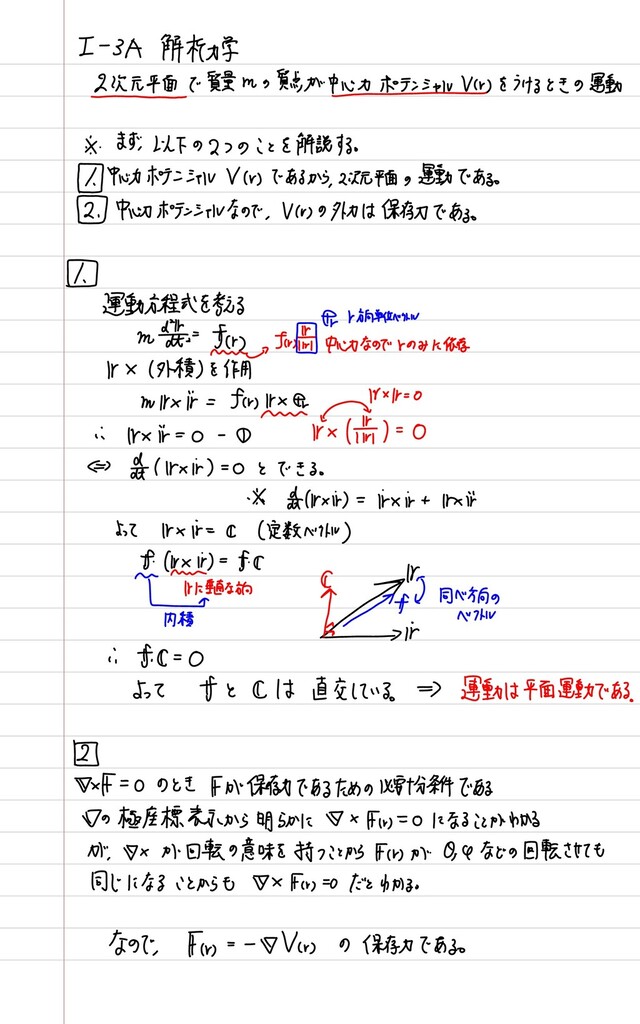 I-3A 解析力学
2次元平面で質量mの質点が中心力ポテンシャルV(r)をうけるときの運動
※ まず、以下の2つのことを解説する。
1. 中心力ポテンシャル V(r) であるから, 2次元平面の運動である。
2. 中心力ポテンシャルなので, V(r)の外力は保存力である。
1.
運動方程式を考える
𝕣方向単位ベクトル
m d²𝕣/dt² = 𝕗(r) f(r) 𝕣/|𝕣| 中心力なのでrのみに依存
𝕣× (外積) を作用
m𝕣×𝕣̈ = f(r) 𝕣×𝕖r 𝕣×𝕣=0
∴ 𝕣×𝕣̈ = 0 − ① 𝕣×(𝕣/|𝕣|) = 0
⇔ d/dt (𝕣×𝕣̇) = 0 とできる。
※ d/dt(𝕣×𝕣̇) = 𝕣̇×𝕣̇ + 𝕣×𝕣̈
よって 𝕣×𝕣̇ = ℂ (定数ベクトル)
𝕗·(𝕣×𝕣̇) = 𝕗·ℂ
𝕣に垂直な方向
内積
ℂ 𝕣 𝕗 𝕣̇
同じ方向の
ベクトル
∴ 𝕗·ℂ = 0
よって 𝕗 と ℂ は 直交している。 ⇒ 運動は平面運動である。
2
∇×𝔽 = 0 のとき 𝔽が保存力であるための必要十分条件である
∇の極座標表示から明らかに ∇×𝔽(r) = 0 になることがわかる
が, ∇× が回転の意味を持つことから 𝔽(r) が θ,φ などの回転させても
同じになることからも ∇×𝔽(r) = 0 だとわかる。
なので, 𝔽(r) = −∇V(r) の保存力である。